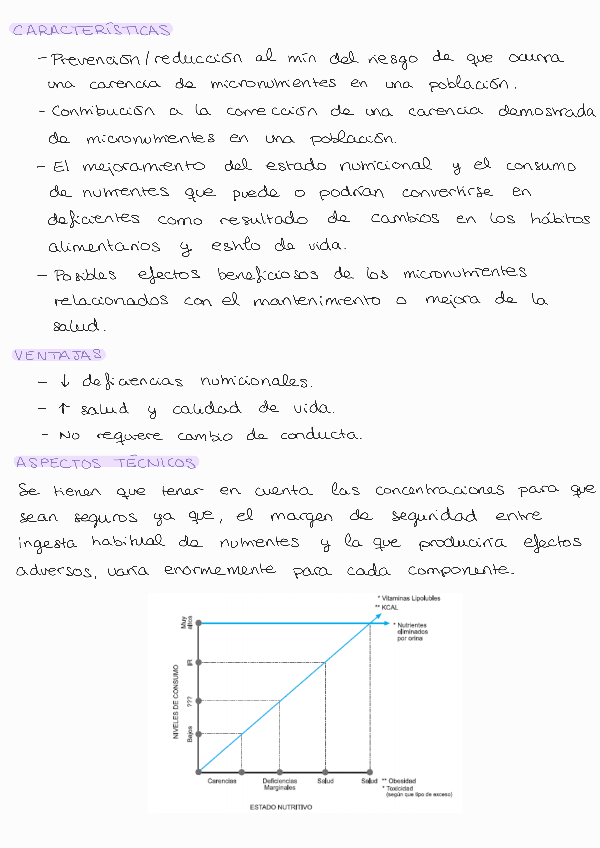 CARACTERÍSTICAS
- Prevención/reducción al mín del riesgo de que ocurra
una carencia de micronutrientes en una población.
- Contribución a la corrección de una carencia demostrada
de micronutrientes en una población.
- El mejoramiento del estado nutricional y el consumo
de nutrientes que puede o podrían convertirse en
deficientes como resultado de cambios en los hábitos
alimentarios y estilo de vida.
- Posibles efectos beneficiosos de los micronutrientes
relacionados con el mantenimiento o mejora de la
salud.
VENTAJAS
- ↓ deficiencias nutricionales.
- ↑ salud y calidad de vida.
- No requiere cambio de conducta.
ASPECTOS TÉCNICOS
Se tienen que tener en cuenta las concentraciones para que
sean seguros ya que, el margen de seguridad entre
ingesta habitual de nutrientes y la que produciría efectos
adversos, varía enormemente para cada componente.
* Vitaminas Lipolubles
** KCAL
* Nutrientes
eliminados
por orina
NIVELES DE CONSUMO
Muy
altos
IR
???
Bajos
Carencias
Deficiencias
Marginales
Salud
Salud
** Obesidad
* Toxicidad
(según que tipo de exceso)
ESTADO NUTRITIVO